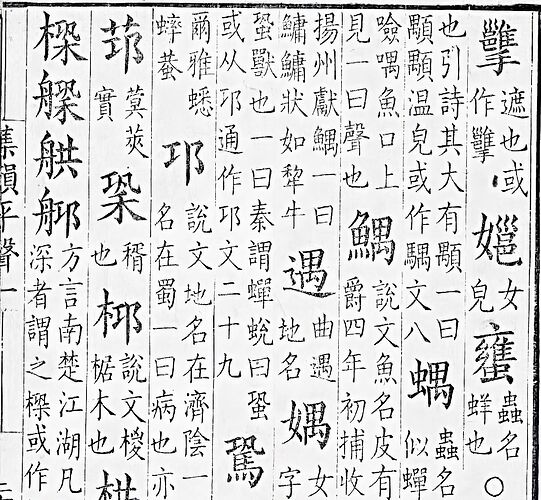 遮也或
作
女
皃
蟲名
蛘也
○
也引詩其大有顒一曰
顒顒温皃或作䮩文八
蝺
蟲名
似蟬
噞喁魚口上
見一曰聲也
鰅
說文魚名皮有
爵四年初捕收
揚州獻鰅一曰
鱅鱅狀如犂牛
遇
曲遇
地名
媀
女
字
蛩獸也一曰秦謂蟬蛻曰蛩
或从邛通作邛文二十九
爾雅蟋
蟀蛬
邛
說文地名在濟陰一
名在蜀一曰病也亦
蓂莢
實
矟
也
說文椶
椐木也
方言南楚江湖凡
深者謂之
或作
集韻平聲一